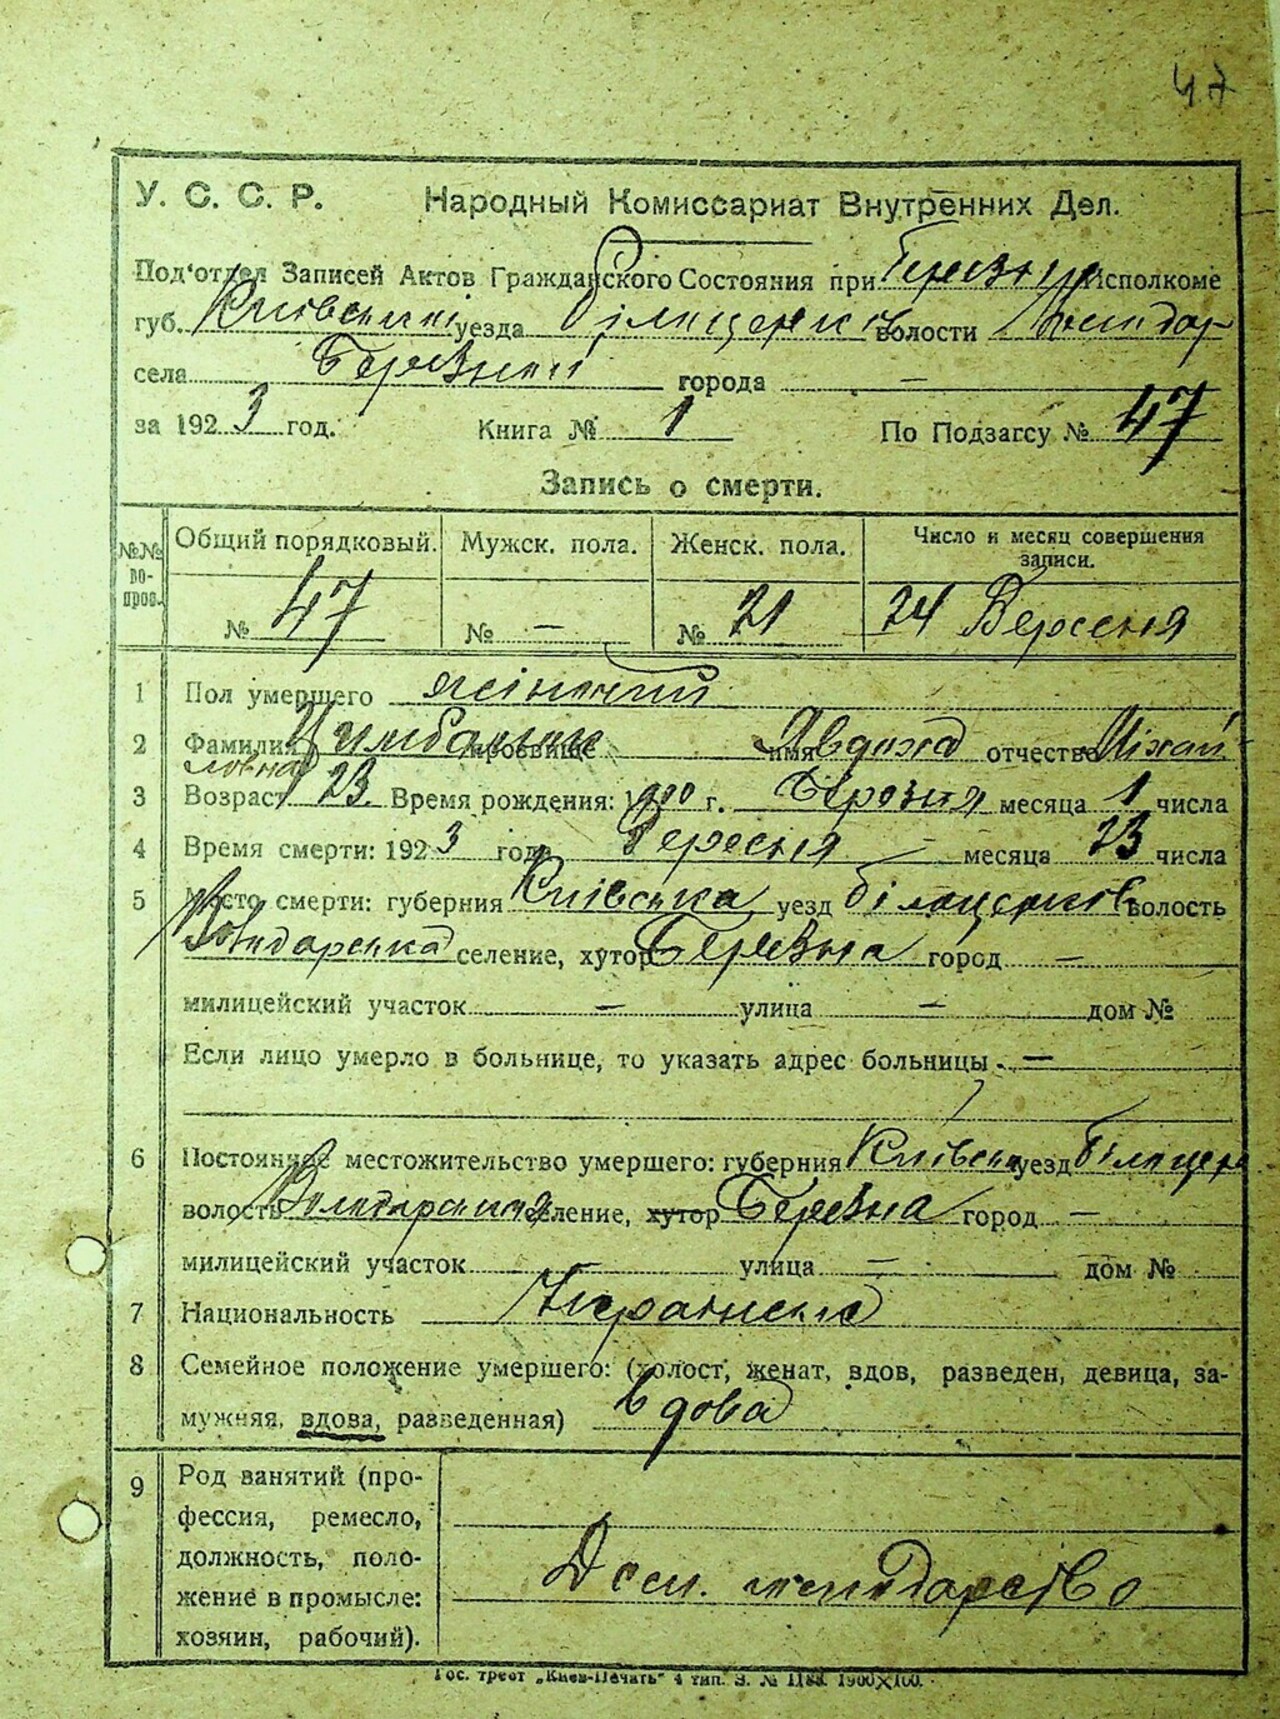 47
У. С. С. Р. Народный Комиссариат Внутренних Дел.
Под'отдел Записей Актов Гражданского Состояния при Березн. Исполкоме
губ. Київській уезда Білоцерків волости Володар-
села Березной города —
за 1923 год. Книга № 1 По Подзагсу № 47
Запись о смерти.
№№ вопров. Общий порядковый. Мужск. пола. Женск. пола. Число и месяц совершения записи.
№ 47 № — № 21 24 Вересня
1 Пол умершего жіночий
2 Фамилия Цимбалюк прозвище имя Явдоха отчество Міхай-
ловна
3 Возраст 23 Время рождения: 1900 г. Березня месяца 1 числа
4 Время смерти: 1923 года Вересня — месяца 23 числа
5 Место смерти: губерния Київська уезд Білоцерків волость
Володарська селение, хутор Березна город —
милицейский участок — улица — дом №
Если лицо умерло в больнице, то указать адрес больницы. —
6 Постоянное местожительство умершего: губерния Київська уезд Білоцер
волость Володарская селение, хутор Березна город —
милицейский участок улица — дом №
7 Национальность Украинська
8 Семейное положение умершего: (холост, женат, вдов, разведен, девица, за-
мужняя, вдова, разведенная) вдова
9 Род занятий (про-
фессия, ремесло,
должность, поло-
жение в промысле:
хозяин, рабочий).
господарство
Гос. трест „Киев-Печать" 4 тип. З. № 1188. 1900X100.